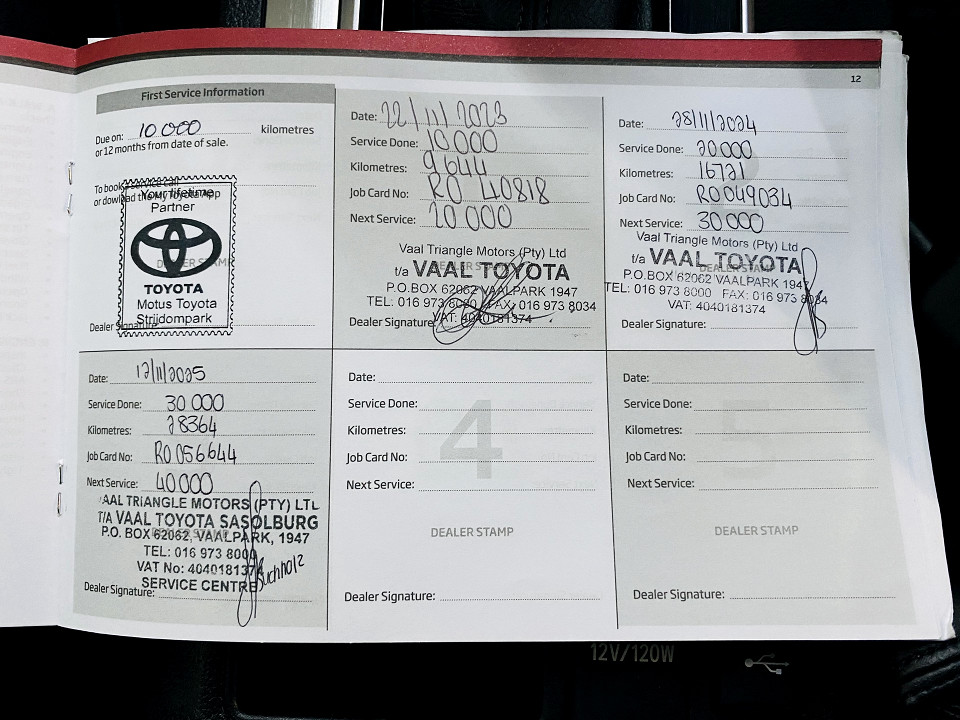 12
First Service Information
Due on: 10 000 kilometres
or 12 months from date of sale.
To book a service call
or dowload the MyToyota App
Your lifetime
Partner
DEALER STAMP
TOYOTA
Motus Toyota
Strijdompark
Dealer Signature:
Date: 22/11/2023
Service Done: 10 000
Kilometres: 9644
Job Card No: RO 40818
Next Service: 20 000
Vaal Triangle Motors (Pty) Ltd
t/a VAAL TOYOTA
P.O.BOX 62062 VAALPARK 1947
TEL: 016 973 8000 FAX: 016 973 8034
VAT: 4040181374
Dealer Signature:
Date: 28/11/2024
Service Done: 20 000
Kilometres: 16721
Job Card No: RO049034
Next Service: 30 000
Vaal Triangle Motors (Pty) Ltd
DEALER STAMP
t/a VAAL TOYOTA
P.O.BOX 62062 VAALPARK 1947
TEL: 016 973 8000 FAX: 016 973 8034
VAT: 4040181374
Dealer Signature:
Date: 12/11/2025
Service Done: 30 000
Kilometres: 28364
Job Card No: RO 056644
Next Service: 40 000
AAL TRIANGLE MOTORS (PTY) LTD
T/A VAAL TOYOTA SASOLBURG
P.O. BOX 62062, VAALPARK, 1947
TEL: 016 973 8000
VAT No: 4040181374
SERVICE CENTRE
Dealer Signature: Buchholz
4
Date:
Service Done:
Kilometres:
Job Card No:
Next Service:
DEALER STAMP
Dealer Signature:
5
Date:
Service Done:
Kilometres:
Job Card No:
Next Service:
DEALER STAMP
Dealer Signature:
12V/120W